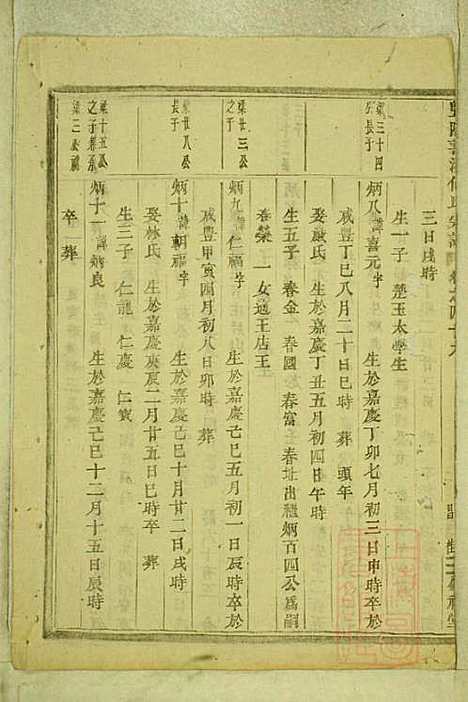 三日戌時
生一子 楚玉太學生
梁三十四
公長子
炳八 諱喜元字 生於嘉慶丁卯七月初三日申時卒於
咸豐丁巳八月二十日巳時 葬 頭年
娶戴氏 生於嘉慶丁丑五月初四日午時
生五子 春金 春國 春富 春址出繼炳百四公爲嗣
春榮 一女適王店王
梁廿三公
之子
炳九 諱仁福字 生於嘉慶己巳五月初一日辰時卒於
咸豐甲寅四月初八日卯時 葬
梁廿八公
長子
炳十 諱朝福字 生於嘉慶己巳十月廿二日戌時
娶林氏 生於嘉慶庚辰二月廿五日巳時卒 葬
生三子 仁龍 仁慶 仁寅
梁十五公
之子
梁三公
炳十一 諱炳良 生於嘉慶己巳十二月十五日辰時
卒 葬